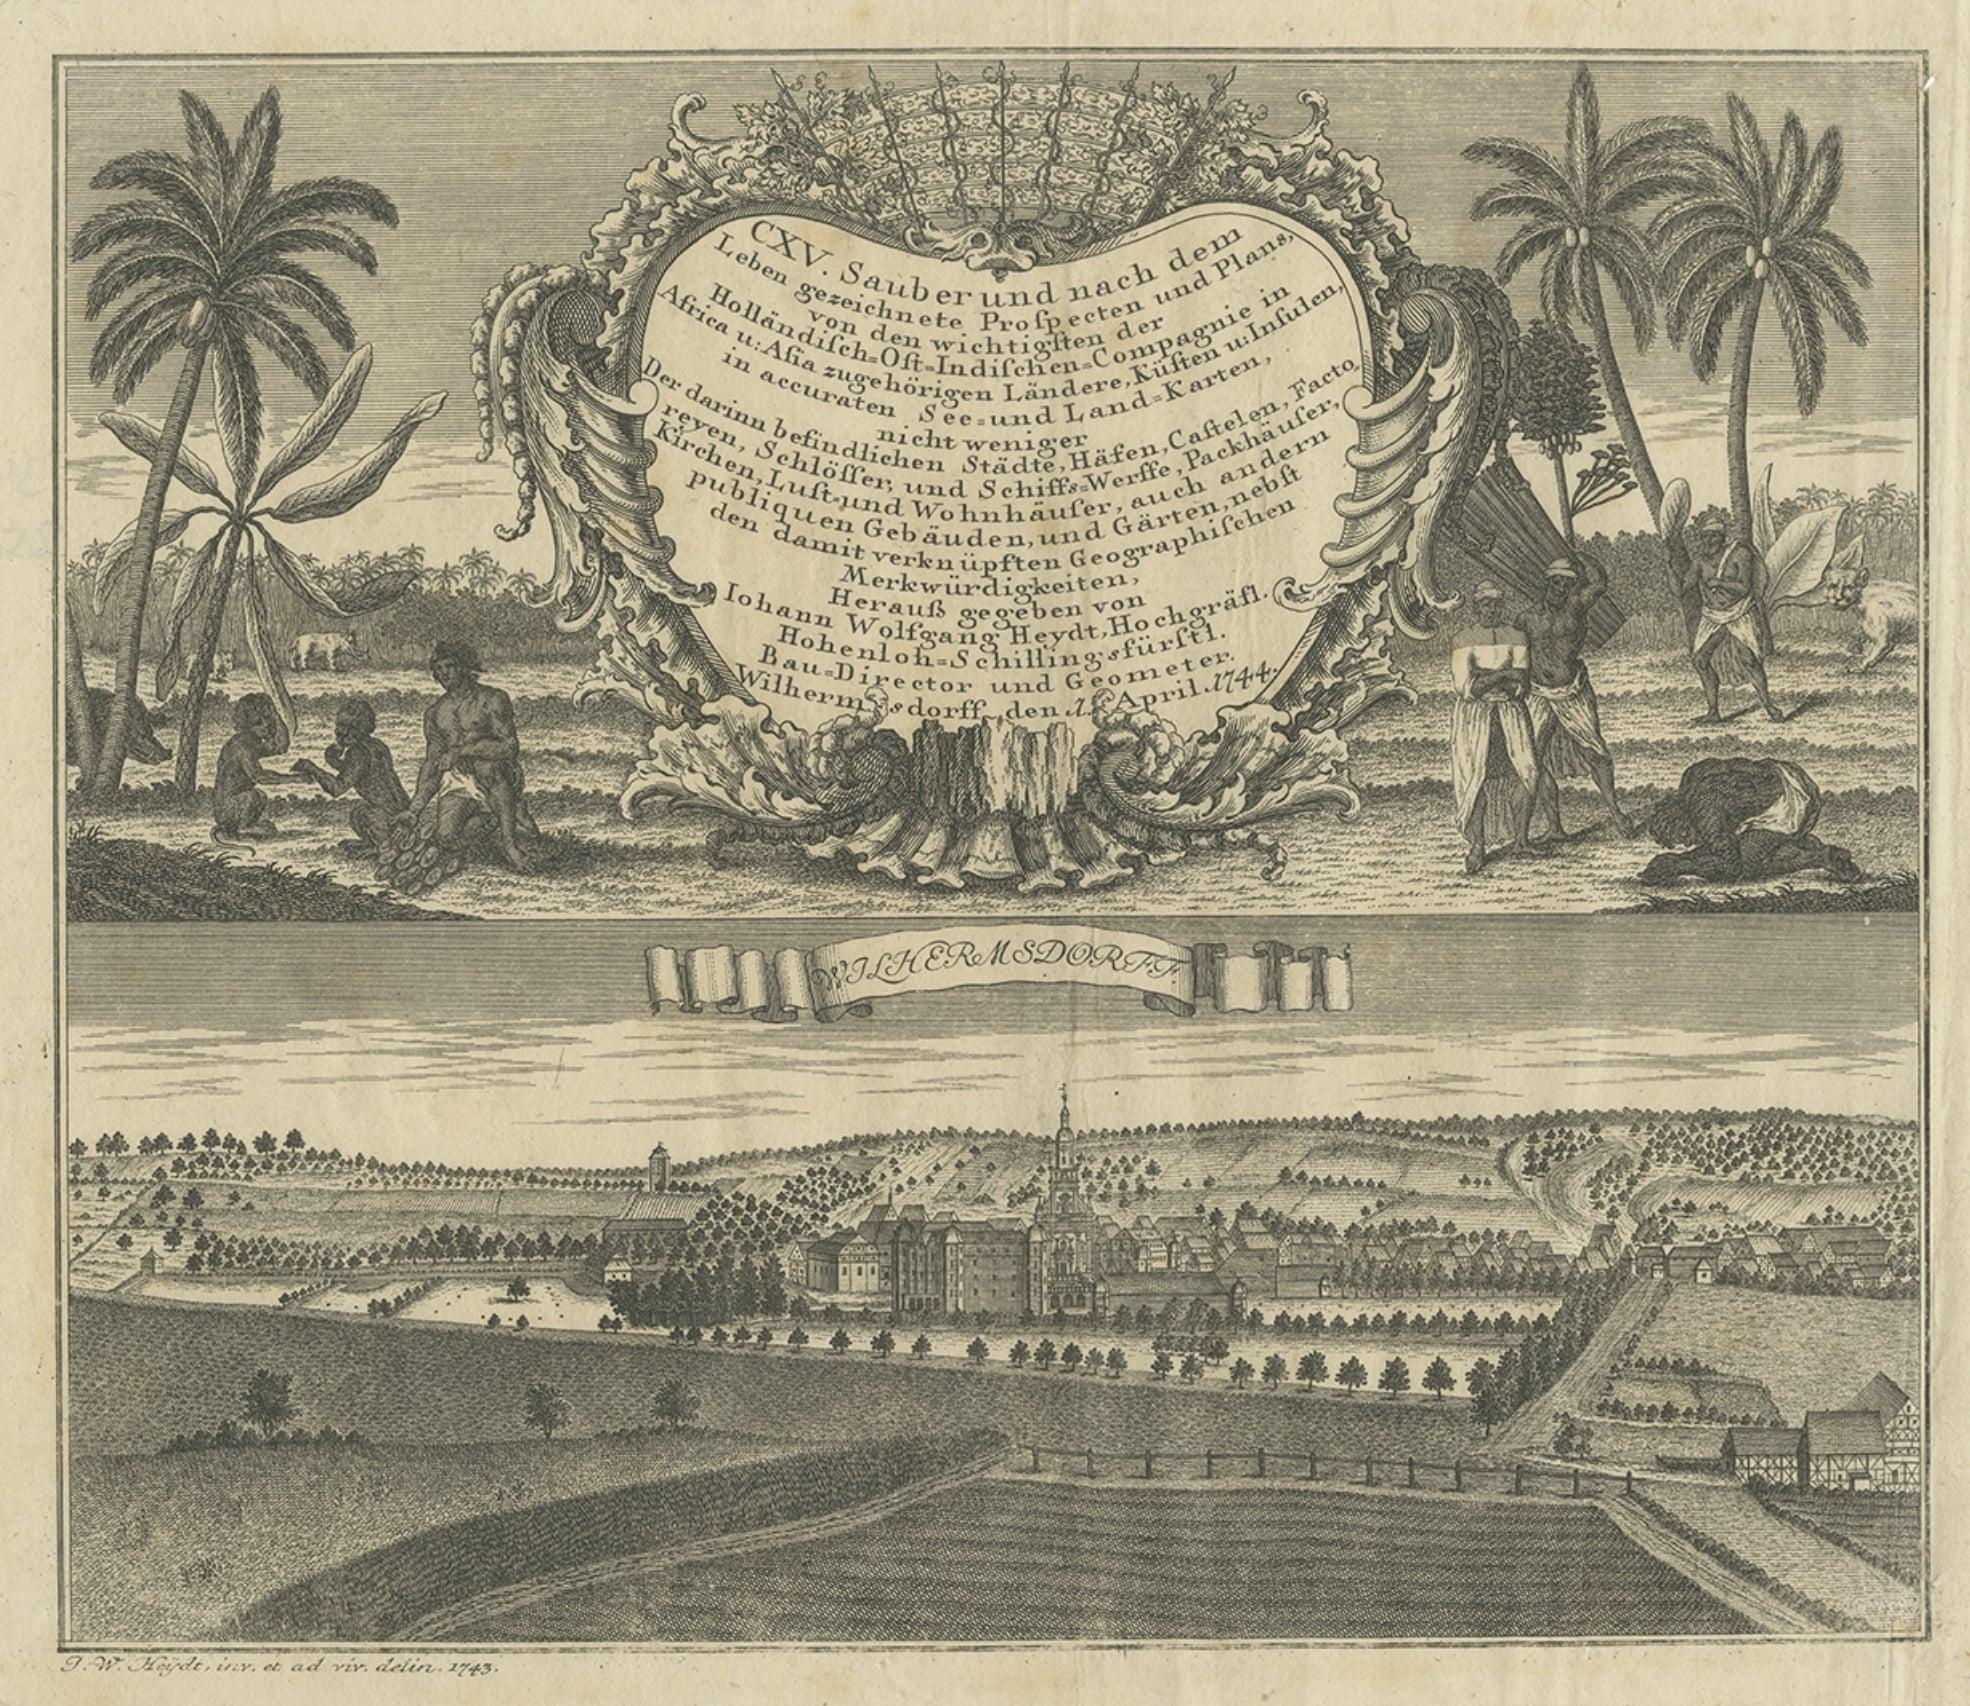 CXV. Sauber und nach dem
Leben gezeichnete Proſpecten und Plans,
von den wichtigſten der
Holländiſch=Oſt=Indiſchen=Compagnie in
Africa u: Aſia zugehörigen Ländere, Küſten u: Inſulen,
in accuraten See=und Land=Karten,
nicht weniger
Der darinn befindlichen Städte, Häfen, Caſtelen, Facto
reyen, Schlöſſer, und Schiffs=Werffe, Packhäuſer,
Kirchen, Luſt=und Wohnhäuſer, auch andern
publiquen Gebäuden, und Gärten, nebſt
den damit verknüpften Geographiſchen
Merkwürdigkeiten,
Herauß gegeben von
Iohann Wolfgang Heydt, Hochgräfl.
Hohenloh=Schillingsfürſtl.
Bau=Director und Geometer.
Wilhermsdorff, den 1. April 1744.
WILHERMSDORFF
J. W. Heÿdt, inv. et ad viv. delin. 1743.